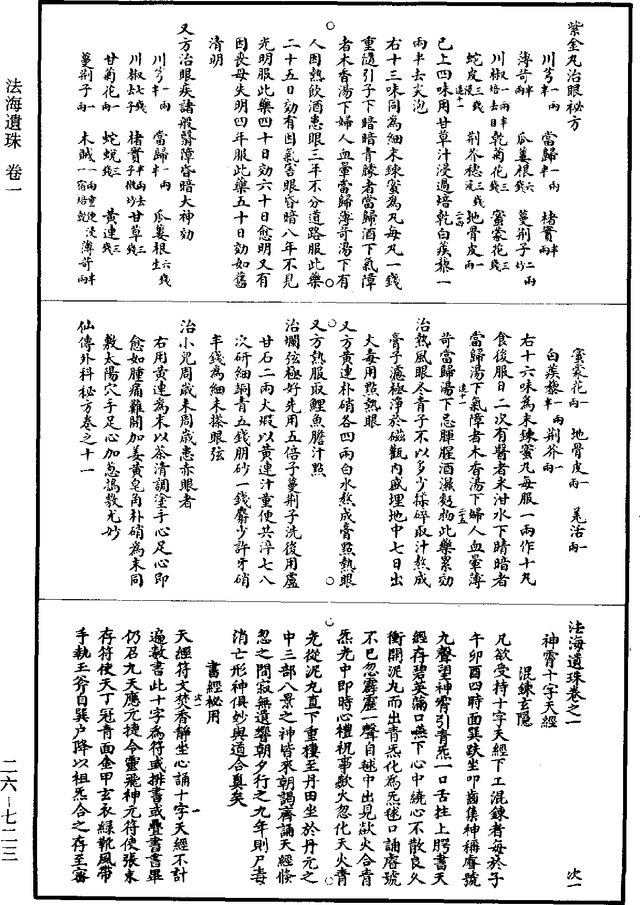 紫金丸治眼秘方
川芎一兩半 當歸一兩半 楮實一兩半
薄苛半兩 瓜蔞根六錢 蔓荆子二兩炒
川椒一兩半 乾菊花三錢 蜜蒙花三錢
蛇皮三錢 荆芥穗三錢 地骨皮一兩
已上四味用甘草汁浸過培乾白蒺藜一
兩半去尖泡
右十三味同為細末煉蜜為丸每丸一錢
重隨引子下暗暗青朦者當歸酒下氣障
者木香湯下婦人血暈當歸薄苛湯下有
人因熱飲酒患眼三年不分道路服此藥
二十五日効有因氣害眼昏暗八年不見
光明服此藥四十日効六十日愈明又有
因喪母失明四年服此藥五十日効如舊
清明
又方治眼疾諸般瞖障昏暗大神効
川芎一兩半 當歸一兩半 瓜蔞根六錢生
川椒七錢半 楮實 甘草三錢
甘菊花一兩 蛇蛻三錢 黄連三錢
蔓荆子一兩 木賊 薄苛半兩
蜜蒙花一兩 地骨皮一兩 羌活一兩
白蒺藜一兩半 荆芥一兩
右十六味為末煉蜜丸每服一兩作十丸
食後服日二次有瞖者米泔水下睛暗者
當歸湯下氣障者木香湯下婦人血暈薄
苛當歸湯下忌腥腥酒濕麪物此藥累効
治熱風眼冬青子不以多少採碎取汁熬成
膏子濾極淨於磁甌内盛埋地中七日出
火毒用點熱眼
又方黄連朴硝各四兩白水熬成膏點熱眼
又方熱服取鯉魚膽汁點
治爛弦極好先用五倍子蔓荆子洗後用盧
甘石二兩大煅以黄連汁童便共淬七八
次研細銅青五錢朋砂一錢麝少許牙硝
半錢為細末搽眼弦
治小兒周歲未周歲患赤眼者
右用黄連為末以茶清調塗手心足心即
愈如腫痛難開加姜黄皂角朴硝為末同
敷太陽穴手足心加葱搗敷尤妙
仙傳外科秘方卷之十一
法海遺珠卷之一 次一
神霄十字天經
混鍊玄隱
凡欲受持十字天經下工混鍊者每於子
午卯酉四時面巽趺坐叩齒集神稱尊號
九聲望神霄引青炁一口舌拄上腭書天
經存碧英滿口嚥下心中繞心不散良久
衝開泥丸而出青炁化為炁毬口誦尊號
不已忽霹靂一聲自毬中出見歘火合青
炁光中即時心禮祝事歘火忽化天火青
光從泥丸直下重樓至丹田坐於丹元之
中三部八景之神皆來朝謁齊誦天經倏
忽之間寂無遺響朝夕行之九年則尸毒
消亡形神俱妙與道合真矣
書經秘用
天經符文焚香靜坐心誦十字天經不計
遍數書此十字為符或排書或疊書書畢
仍召九天應元捷令靈飛神元符使張東
存符使天丁冠青面金甲玄衣綠靴風帶
手執玉斧自巽户降以祖炁合之存至審
法海遺珠 卷一
二六—七二三